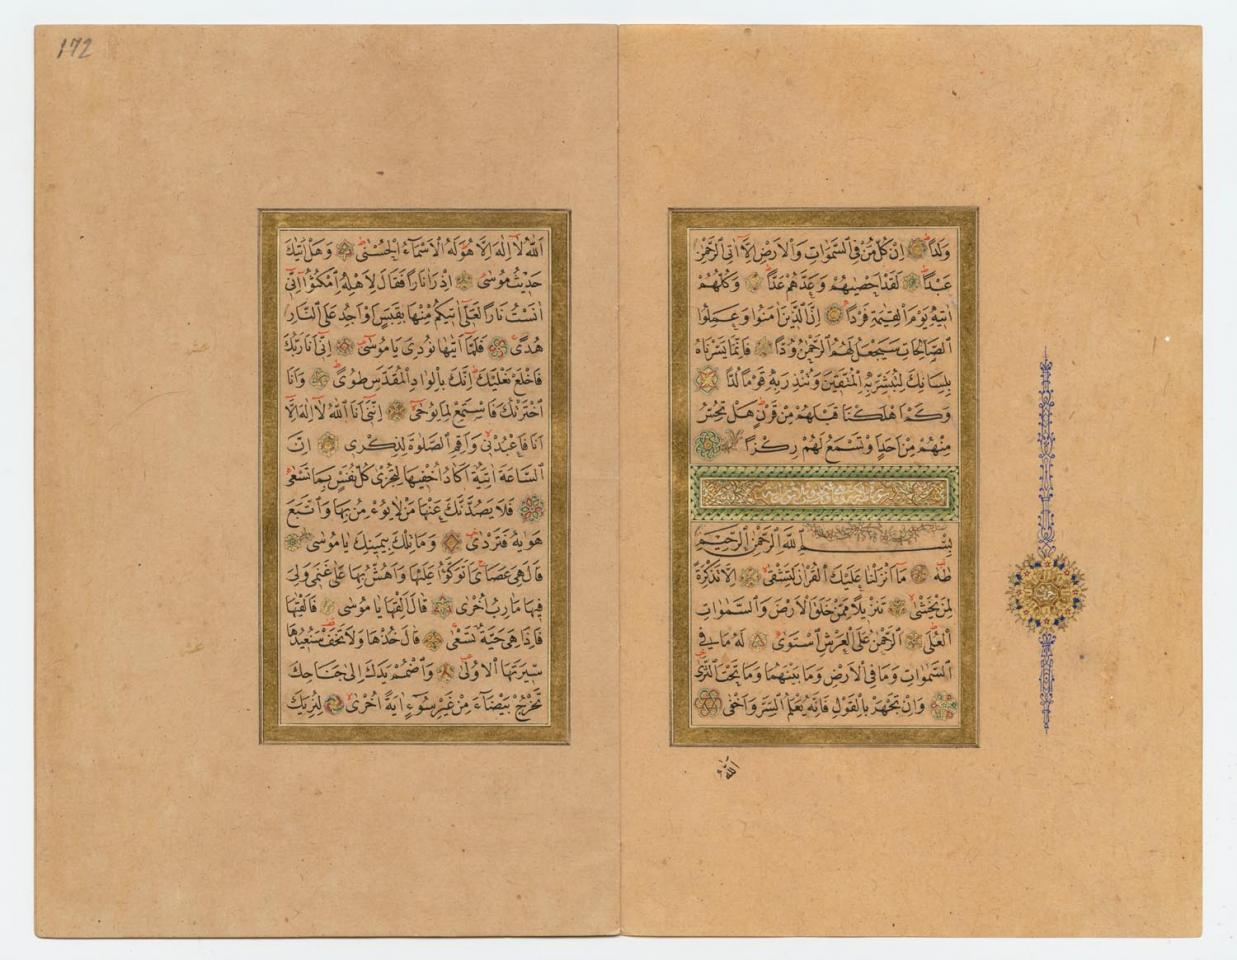 وَلَدًا اِنْ كُلُّ مَنْ فِي السَّمٰوَاتِ وَالْاَرْضِ اِلَّا اٰتِي الرَّحْمٰنِ
عَبْدًا لَقَدْ اَحْصٰيهُمْ وَعَدَّهُمْ عَدًّا وَكُلُّهُمْ
اٰتِيهِ يَوْمَ الْقِيٰمَةِ فَرْدًا اِنَّ الَّذِينَ اٰمَنُوا وَعَمِلُوا
الصَّالِحَاتِ سَيَجْعَلُ لَهُمُ الرَّحْمٰنُ وُدًّا فَاِنَّمَا يَسَّرْنَاهُ
بِلِسَانِكَ لِتُبَشِّرَ بِهِ الْمُتَّقِينَ وَتُنْذِرَ بِهِ قَوْمًا لُدًّا
وَكَمْ اَهْلَكْنَا قَبْلَهُمْ مِنْ قَرْنٍ هَلْ تُحِسُّ
مِنْهُمْ مِنْ اَحَدٍ اَوْ تَسْمَعُ لَهُمْ رِكْزًا
بِسْمِ اللّٰهِ الرَّحْمٰنِ الرَّحِيمِ
طٰهٰ مَا اَنْزَلْنَا عَلَيْكَ الْقُرْاٰنَ لِتَشْقٰى اِلَّا تَذْكِرَةً
لِمَنْ يَخْشٰى تَنْزِيلًا مِمَّنْ خَلَقَ الْاَرْضَ وَالسَّمٰوَاتِ
الْعُلٰى الرَّحْمٰنُ عَلَى الْعَرْشِ اسْتَوٰى لَهُ مَا فِي
السَّمٰوَاتِ وَمَا فِي الْاَرْضِ وَمَا بَيْنَهُمَا وَمَا تَحْتَ الثَّرٰى
وَاِنْ تَجْهَرْ بِالْقَوْلِ فَاِنَّهُ يَعْلَمُ السِّرَّ وَاَخْفٰى
اَللّٰهُ
172
اَللّٰهُ لَا اِلٰهَ اِلَّا هُوَ لَهُ الْاَسْمَاءُ الْحُسْنٰى وَهَلْ اَتٰيكَ
حَدِيثُ مُوسٰى اِذْ رَاٰ نَارًا فَقَالَ لِاَهْلِهِ امْكُثُوا اِنِّي
اٰنَسْتُ نَارًا لَعَلِّي اٰتِيكُمْ مِنْهَا بِقَبَسٍ اَوْ اَجِدُ عَلَى النَّارِ
هُدًى فَلَمَّا اَتٰيهَا نُودِيَ يَا مُوسٰى اِنِّي اَنَا رَبُّكَ
فَاخْلَعْ نَعْلَيْكَ اِنَّكَ بِالْوَادِ الْمُقَدَّسِ طُوًى وَاَنَا
اخْتَرْتُكَ فَاسْتَمِعْ لِمَا يُوحٰى اِنَّنِي اَنَا اللّٰهُ لَا اِلٰهَ اِلَّا
اَنَا فَاعْبُدْنِي وَاَقِمِ الصَّلٰوةَ لِذِكْرِي اِنَّ
السَّاعَةَ اٰتِيَةٌ اَكَادُ اُخْفِيهَا لِتُجْزٰى كُلُّ نَفْسٍ بِمَا تَسْعٰى
فَلَا يَصُدَّنَّكَ عَنْهَا مَنْ لَا يُؤْمِنُ بِهَا وَاتَّبَعَ
هَوٰيهُ فَتَرْدٰى وَمَا تِلْكَ بِيَمِينِكَ يَا مُوسٰى
قَالَ هِيَ عَصَايَ اَتَوَكَّؤُا عَلَيْهَا وَاَهُشُّ بِهَا عَلٰى غَنَمِي وَلِيَ
فِيهَا مَاٰرِبُ اُخْرٰى قَالَ اَلْقِهَا يَا مُوسٰى فَاَلْقٰيهَا
فَاِذَا هِيَ حَيَّةٌ تَسْعٰى قَالَ خُذْهَا وَلَا تَخَفْ سَنُعِيدُهَا
سِيرَتَهَا الْاُولٰى وَاضْمُمْ يَدَكَ اِلٰى جَنَاحِكَ
تَخْرُجْ بَيْضَاءَ مِنْ غَيْرِ سُوءٍ اٰيَةً اُخْرٰى لِنُرِيَكَ